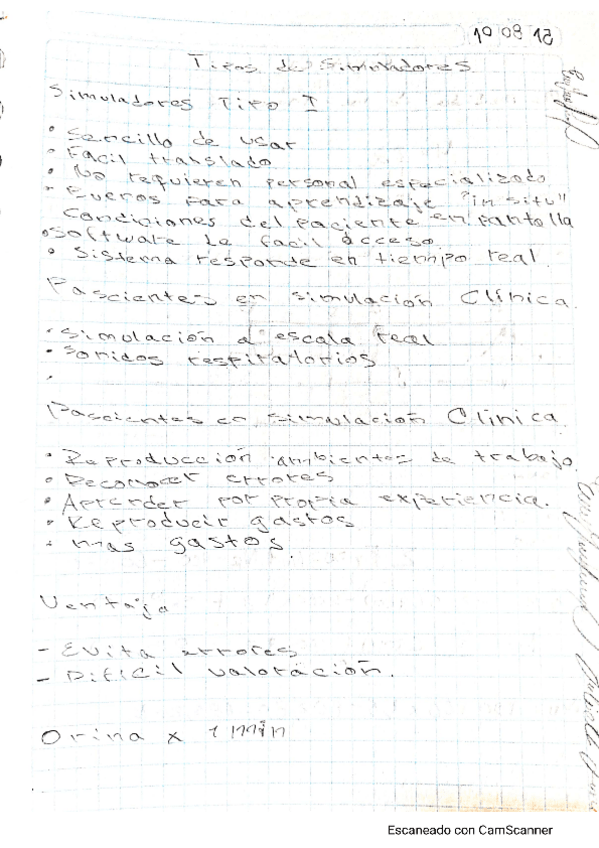 10 09 18
Tipos de Simuladores
Simuladores Tipo I
• Sencillo de usar
• Facil translado
• No requieren personal especializado
- Buenos para aprendizaje "in situ"
Condiciones del paciente en pantalla
• Software de facil acceso.
• Sistema responde en tiempo real.
Pascientes en simulación Clínica.
• Simulación a escala real
• Sonidos respiratorios
•
Pascientes en simulación Clínica.
• Reproducción ambientes de trabajo.
• Reconocer errores
• Aprender por propia experiencia.
• Reproducir gastos
• mas gastos.
Ventaja
- Evita errores
- Dificil valoración.
Orina x 1 min
Escaneado con CamScanner